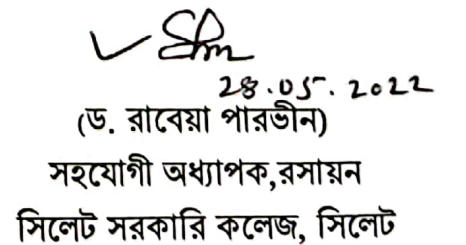 28.05.2022
(ড. রাবেয়া পারভীন)
সহযোগী অধ্যাপক,রসায়ন
সিলেট সরকারি কলেজ, সিলেট